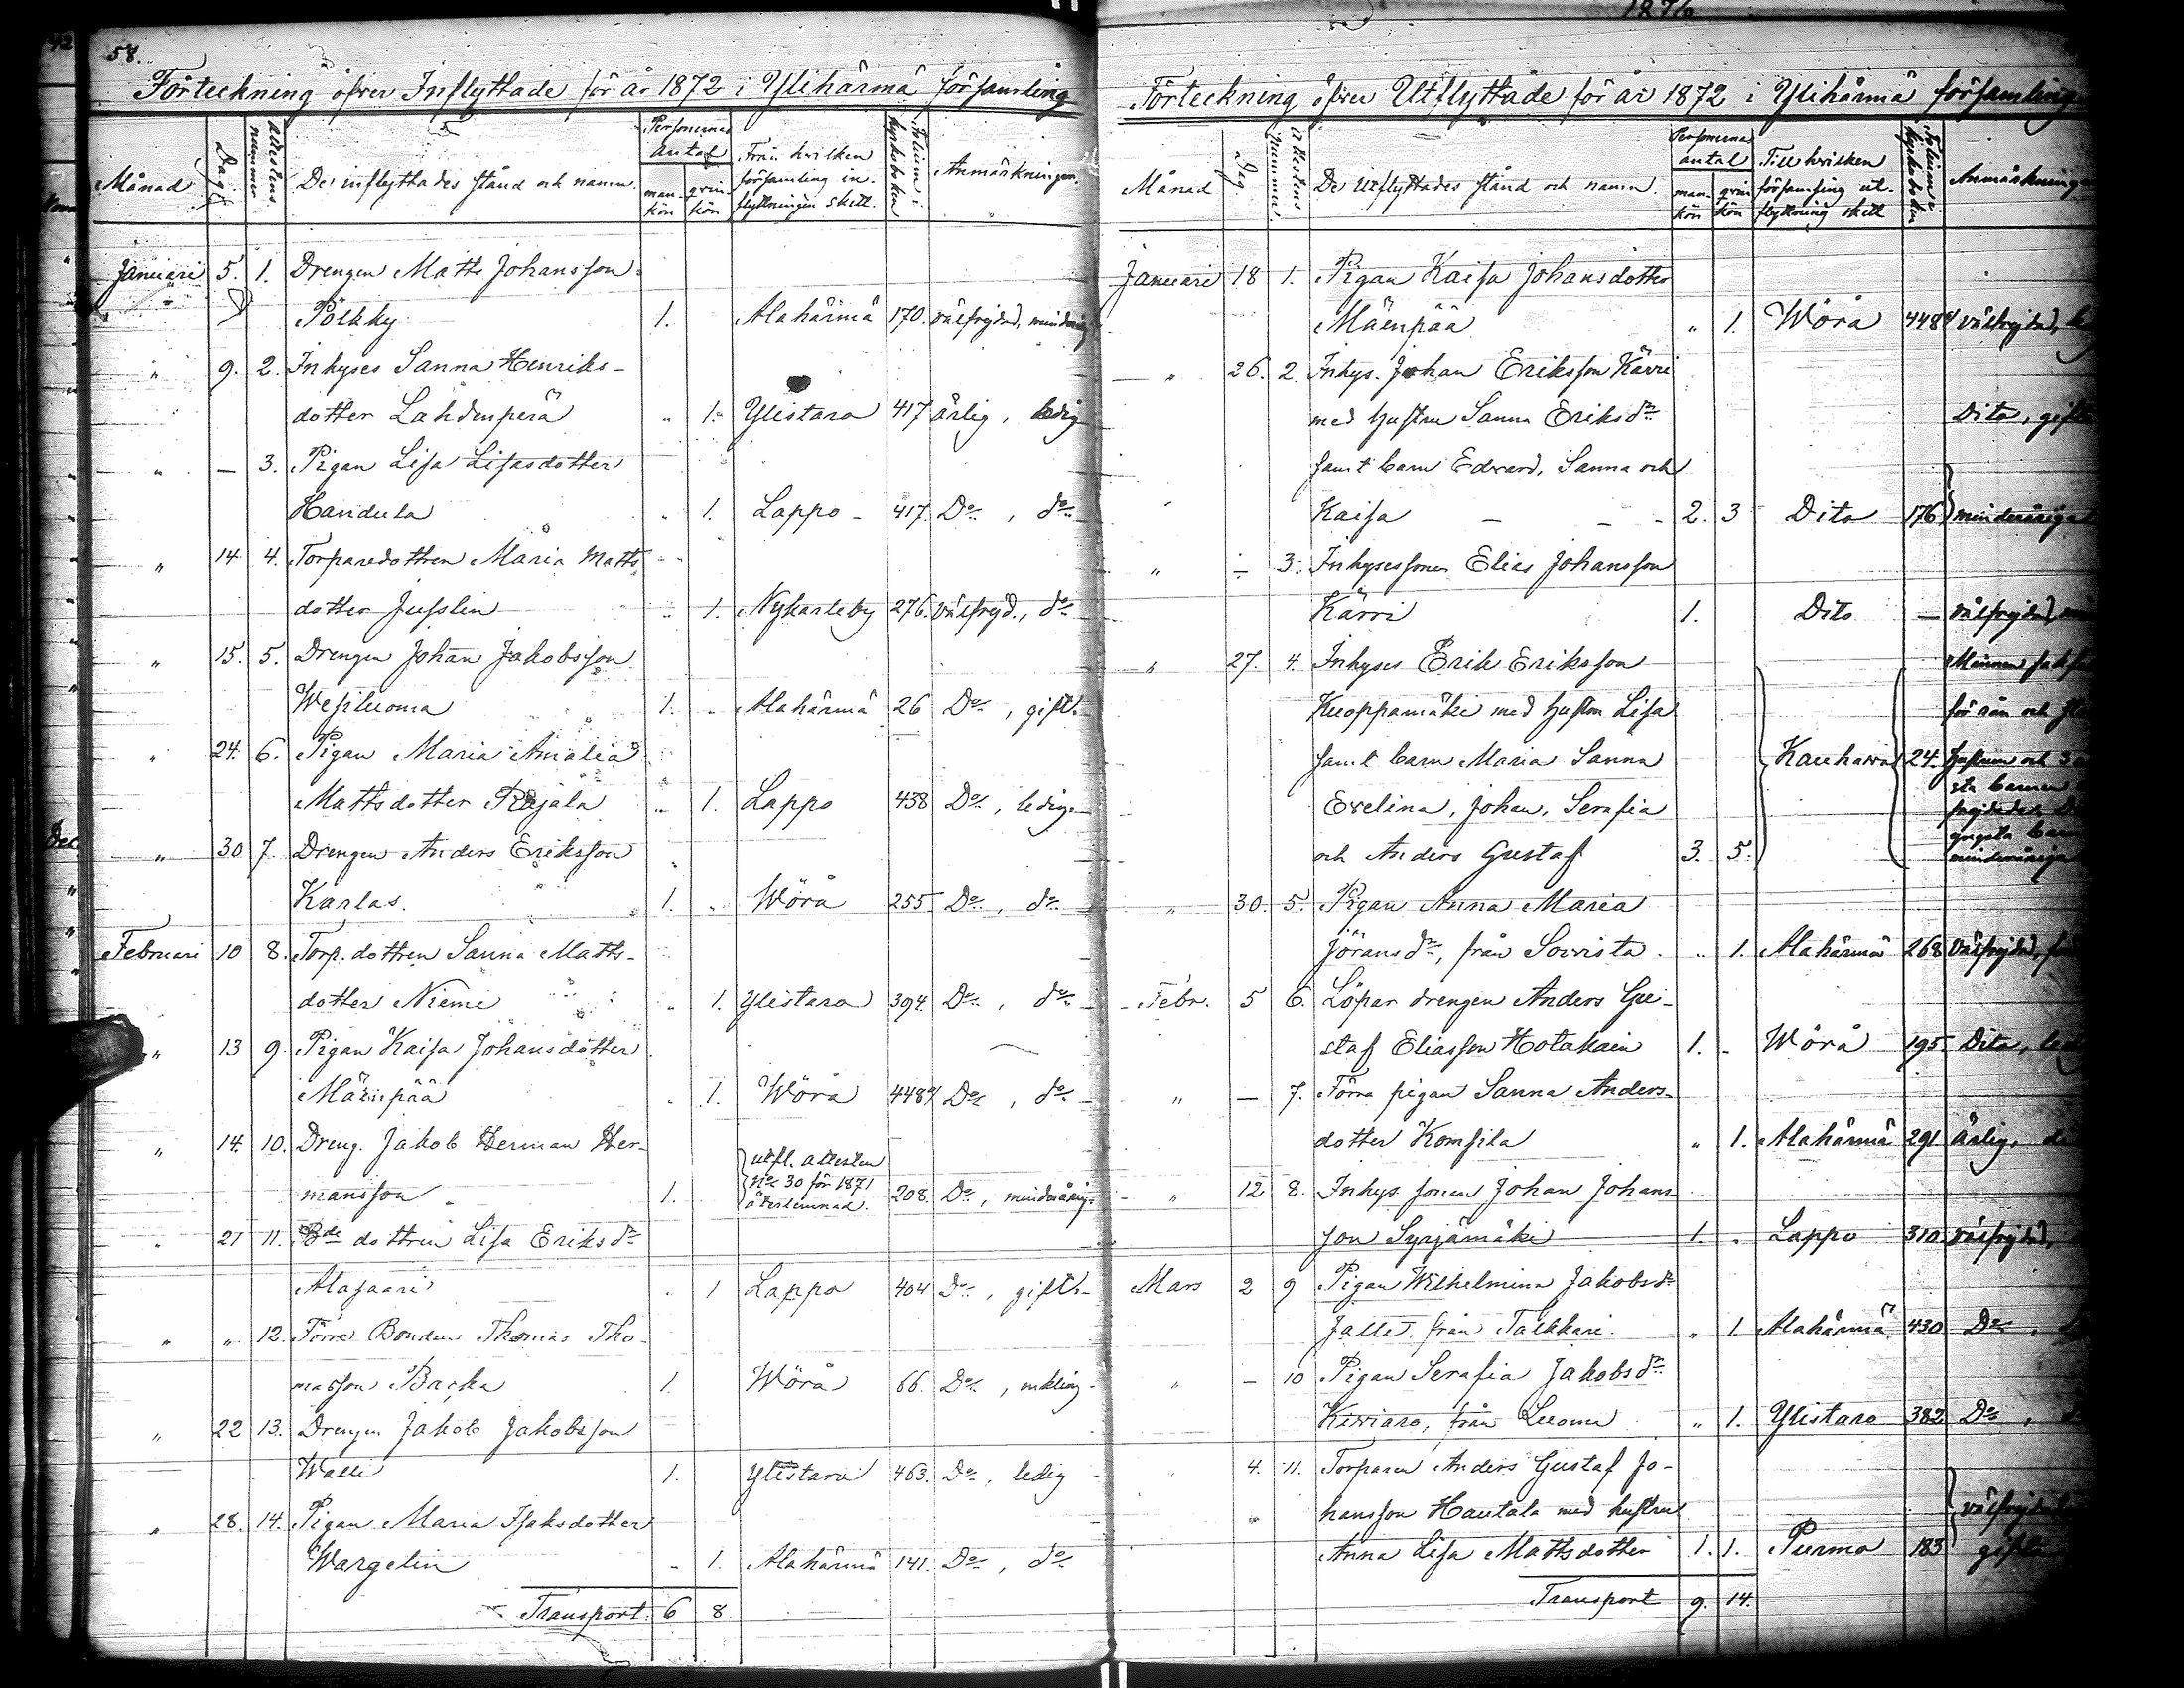 58.
Förteckning öfver Inflyttade för år 1872 i Ylihärmä församling
Månad Dag Attestens nummer De inflyttades stånd och namn. Personernas antal mankön qvinkön Från hvilken församling inflyttningen skett. Folium i kyrkoboken Anmärkningar.
Januari 5. 1. Drengen Matts Johansson
Pölkky 1. Alahärmä 170. välfrejdad, minderårig
" 9. 2. Inhyses Sanna Henriks-
dotter Lahdenperä " 1. Ylistaro 417 ärlig, ledig
" — 3. Pigan Lisa Lisasdotter
Handula " 1. Lappo - 417. Do, do
" 14 4. Torparedottren Maria Matts
dotter Jusslin " 1. Nykarleby 276. välfrejd., do
" 15. 5. Drengen Johan Jakobsson
Wesiluoma 1. " Alahärmä 26 Do, gift.
" 24. 6. Pigan Maria Amalia
Mattsdotter Rajala " 1. Lappo 438 Do, ledig
" 30 7. Drengen Anders Eriksson
Karlas. 1. " Wörå 255 Do, do
Februari 10 8. Torp. dottren Sanna Matts-
dotter Niemi " 1. Ylistaro 394. Do, do
" 13 9. Pigan Kaisa Johansdotter
Mäenpää " 1. Wörå 448 Do, do
" 14. 10. Dreng. Jakob Herman Her-
mansson 1. utfl. attesten No 30 för 1871 återlemnad. 208. Do, minderårig
" 21 11. Bde dottren Lisa Eriksdr
Alasaari " 1 Lappo 404 Do, gift
" " 12. Förre Bonden Thomas Tho-
masson Backa 1. Wörå 66. Do, enkling
" 22 13. Drengen Jakob Jakobsson
Walli 1. Ylistaro 463. Do, ledig
" 28. 14. Pigan Maria Isaksdotter
Wargelin " 1. Alahärmä 141. Do, do
Transport 6 8.
Förteckning öfver Utflyttade för år 1872 i Ylihärmä församling
Månad Dag Attestens nummer. De utflyttades stånd och namn. Personernas antal mankön qvinkön Till hvilken församling utflyttning skett Folium i kyrkoboken Anmärkning
Januari 18 1. Pigan Kaisa Johansdotter
Mäenpää " 1. Wörå 448 välfrejdad,
" 26. 2. Inhys. Johan Eriksson Kärri
med hustru Sanna Eriksdr Dito, gift
samt barn Edvard, Sanna och
Kaisa — - - 2. 3 Dito 176 minderåriga
" — 3. Inhysessonen Elias Johansson
Kärri 1. Dito — välfrejdad,
" 27. 4. Inhyses Erik Eriksson Mannen
Kuoppamäki med hustru Lisa för rån och
samt barn Maria Sanna Kauhava 24. hustrun och 3
Evelina, Johan, Serafia sta barnen
och Anders Gustaf 3. 5. yngsta minderåriga
" 30. 5. Pigan Anna Maria
Jöransdr, från Soivista. " 1. Alahärmä 268 välfrejdad,
Febr. 5 6. Löpar drengen Anders Gu-
staf Eliasson Hotakain 1. - Wörå 195. Dito,
" — 7. Förra pigan Sanna Anders-
dotter Komsila " 1. Alahärmä 291 ärlig,
" 12 8. Inhys. sonen Johan Johans-
son Syrjämäki 1. " Lappo 310. välfrejdad,
Mars 2 9 Pigan Wilhelmina Jakobsdr
Jalle. från Talkkari. " 1 Alahärmä 430 Do,
" — 10 Pigan Serafia Jakobsdr
Kiwiaro, från Luoma " 1. Ylistaro 382 Do,
" 4. 11. Torparen Anders Gustaf Jo-
" hansson Hautala med hustru välfrejdad
Anna Lisa Mattsdotter 1. 1. Purmo 183
Transport 9. 14.